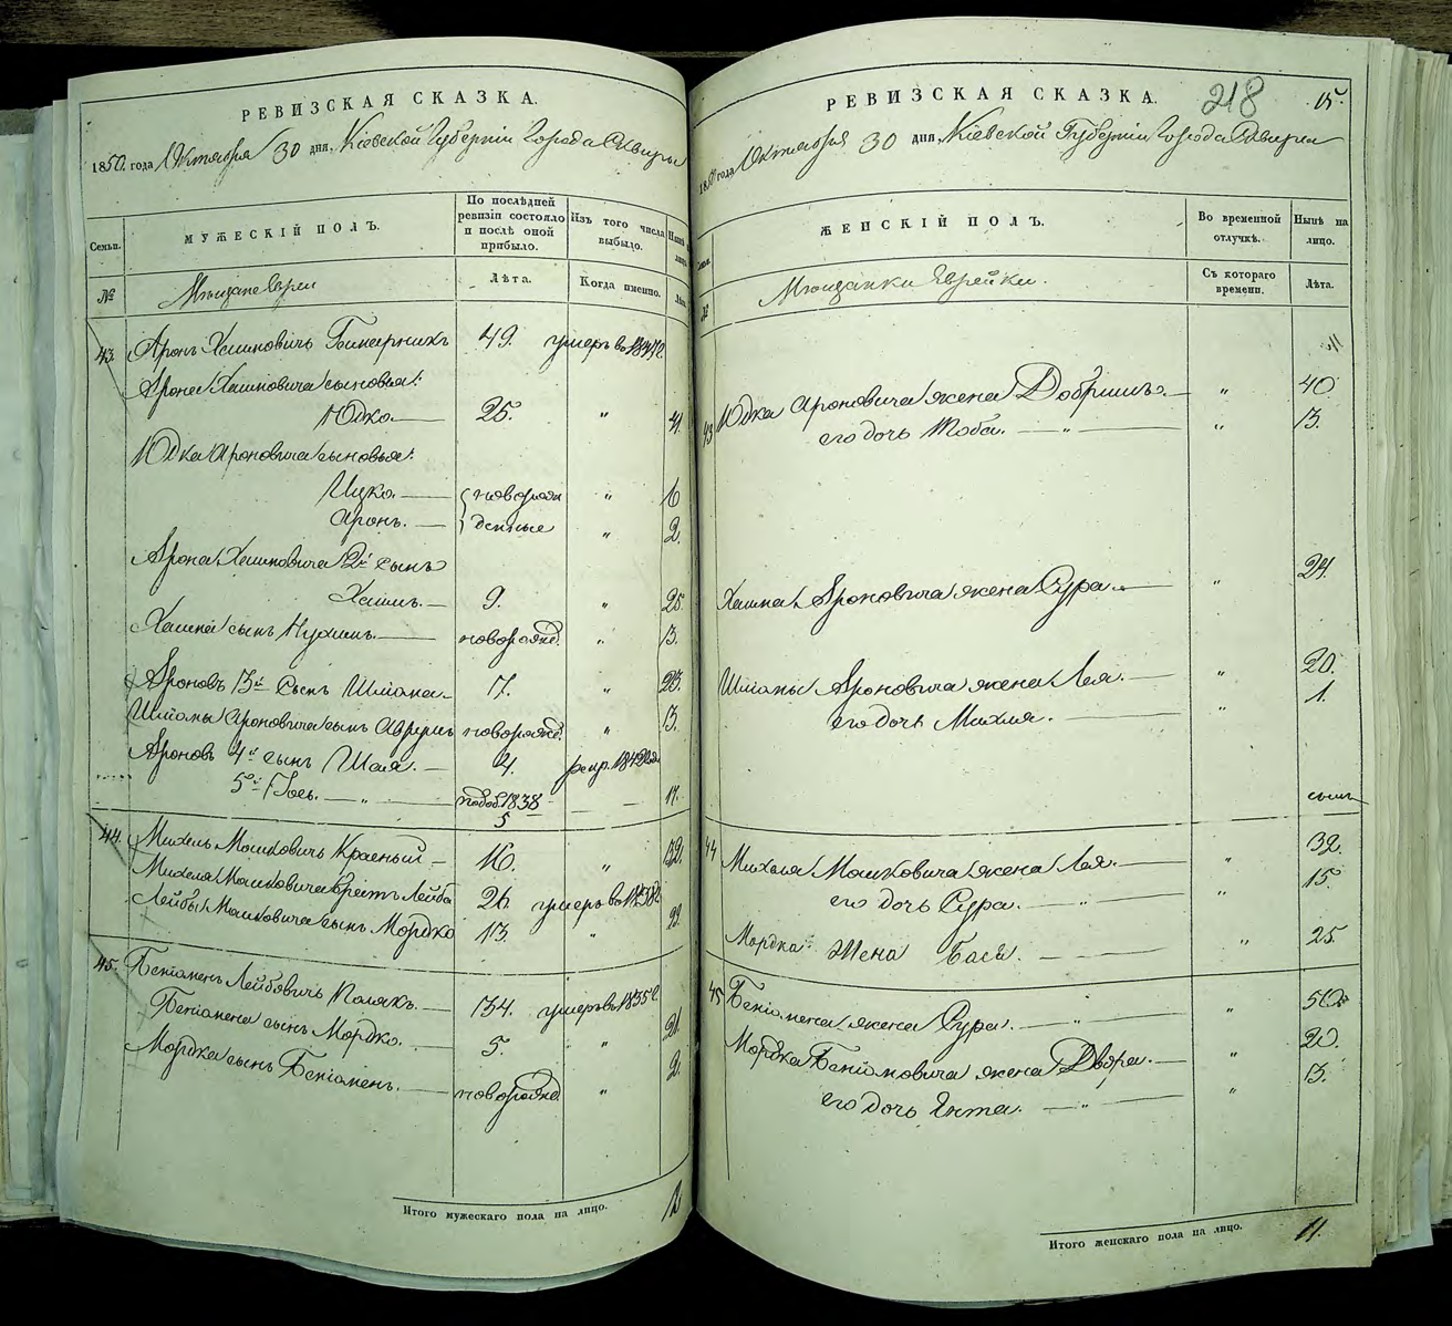 РЕВИЗСКАЯ СКАЗКА.
1850 года Октября 30 дня, Кіевской Губерніи Города Сквиры
Семьи.
МУЖЕСКІЙ ПОЛЪ.
По послѣдней ревизіи состояло и послѣ оной прибыло.
Изъ того числа выбыло.
№
Мѣщане Евреи
Лѣта.
Когда именно.
43. Аронъ Хаимовичъ 49. умеръ въ
Арона Хаимовича сыновья:
Юдко 25. " 41.
Юдка Ароновича сыновья:
Ицко новорож " 6
Аронъ. денные " 2.
Арона Хаимовича 2й сынъ
Хаимъ. 9. " 25.
Хаима сынъ Нухимъ. новорожд. " 3.
Ароновъ 3й сынъ Шліома 7. " 23.
Шліомы Ароновича сынъ Аврумъ новорожд. " 3.
Ароновъ 4й сынъ Шая. 4.
5й 1838
44. Михель Мошковичъ Красный 16. " 32.
Михеля Мошковича братъ Лейба 26. умеръ въ
Лейбы Мошковича сынъ Мордко 13. "
45. Беніоменъ Лейбовичъ Полякъ. 34. умеръ въ 1835
Беніомена сынъ Мордко. 5. " 21.
Мордка сынъ Беніоменъ. новорожд " 2.
Итого мужескаго пола на лицо. 12
РЕВИЗСКАЯ СКАЗКА. 218 15.
года Октября 30 дня, Кіевской Губерніи Города Сквиры
ЖЕНСКІЙ ПОЛЪ.
Во временной отлучкѣ.
Нынѣ на лицо.
№
Мѣщанки Еврейки.
Съ котораго времени.
Лѣта.
43 Юдка Ароновича жена Добришъ. " 40.
его дочь Тоба. " " 13.
Хаима Ароновича жена Сура. " 24.
Шліомы Ароновича жена Лея. " 20.
его дочь Михля. " 1.
44 Михеля Мошковича жена Лея. " 32.
его дочь Сура. " " 15.
Мордка жена Бася. " 25.
45 Беніомена жена Сура. " " 50
Мордка Беніомовича жена Двора. " 20.
его дочь Ента. " " 3.
Итого женскаго пола на лицо. 11.